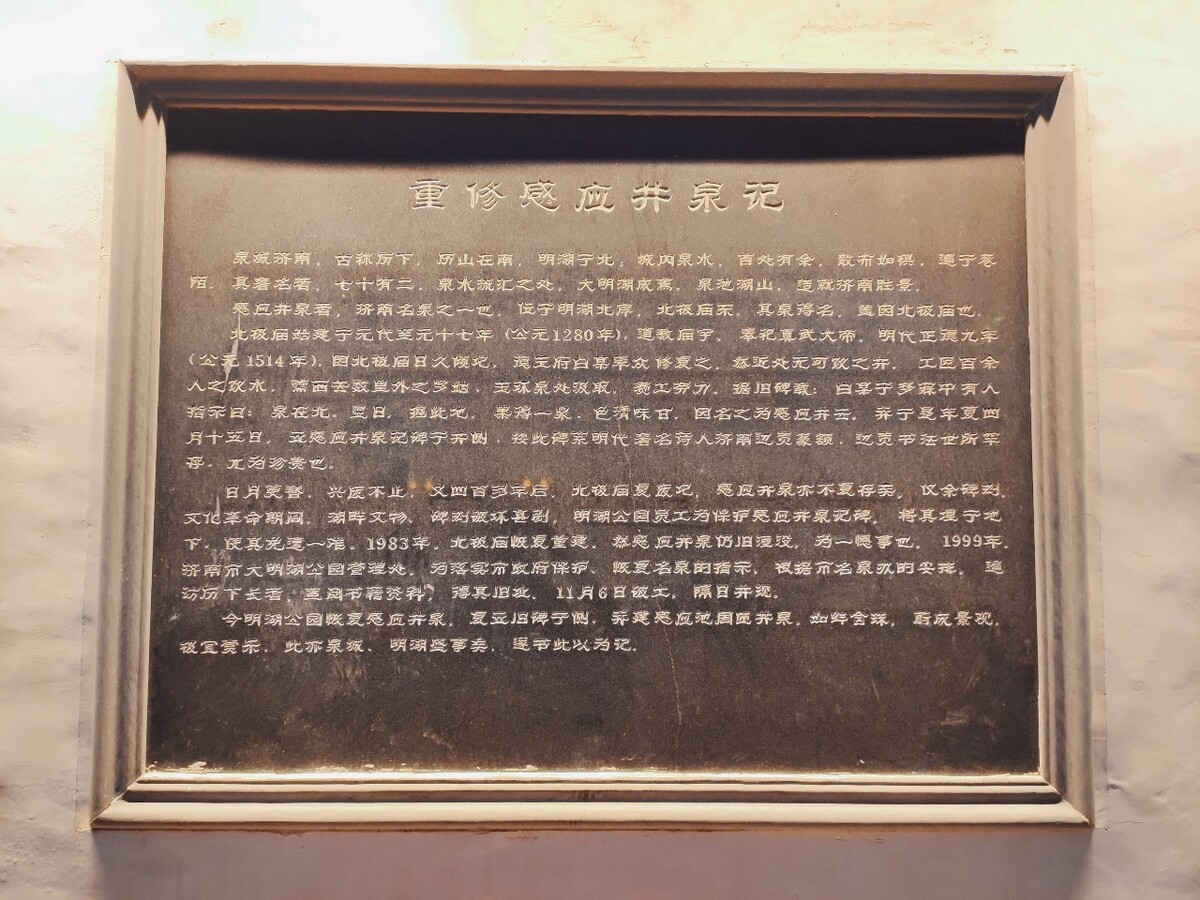 重修感应井泉记
泉城济南，古称历下，历山在南，明湖于北，城内泉水，百处有余，散布如棋，遍于巷
陌。其著名者，七十有二，泉水流汇之处，大明湖成焉，泉池湖山，造就济南胜景。
感应井泉者，济南名泉之一也，位于明湖北岸，北极庙东，其泉得名，盖因北极庙也。
北极庙始建于元代至元十七年（公元1280年），道教庙宇，奉祀真武大帝，明代正德九年
（公元1514年），因北极庙日久倾圮，德王府白某率众修复之，然近处无可饮之井，工匠百余
人之饮水，需西去数里外之罗姑、玉环泉处汲取，费工劳力。据旧碑载：白某于梦寐中有人
指示曰：泉在北，翌日，掘此地，果得一泉，色清味甘，因名之为感应井云。并于是年夏四
月十五日，立感应井泉记碑于井侧，按此碑系明代著名诗人济南边贡篆额，边贡书法世所罕
存，尤为珍贵也。
日月更替，兴废不止，又四百多年后，北极庙复废圮，感应井泉亦不复存矣，仅余碑刻。
文化革命期间，湖畔文物、碑刻破坏甚剧，明湖公园员工为保护感应井泉记碑，将其埋于地
下，使其免遭一难。1983年，北极庙恢复重建，然感应井泉仍旧湮没，为一憾事也。1999年，
济南市大明湖公园管理处，为落实市政府保护、恢复名泉的指示，根据市名泉办的安排，遍
访历下长者，查阅书籍资料，得其旧址，11月6日破土，隔日井现。
今明湖公园恢复感应井泉，复立旧碑于侧，并建感应池周匝井泉，如蚌含珠，蔚成景观，
极宜赏乐，此亦泉城、明湖盛事矣，遂书此以为记。